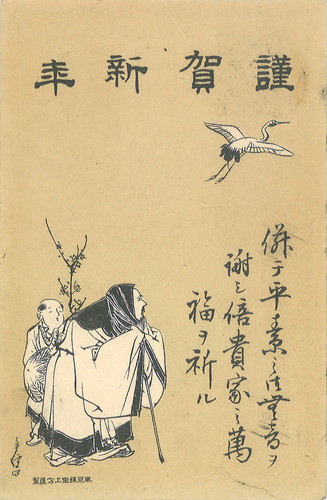 謹賀新年
併テ平素之御無音ヲ
謝シ倍貴家之萬
福ヲ祈ル
東京銀座上方屋製